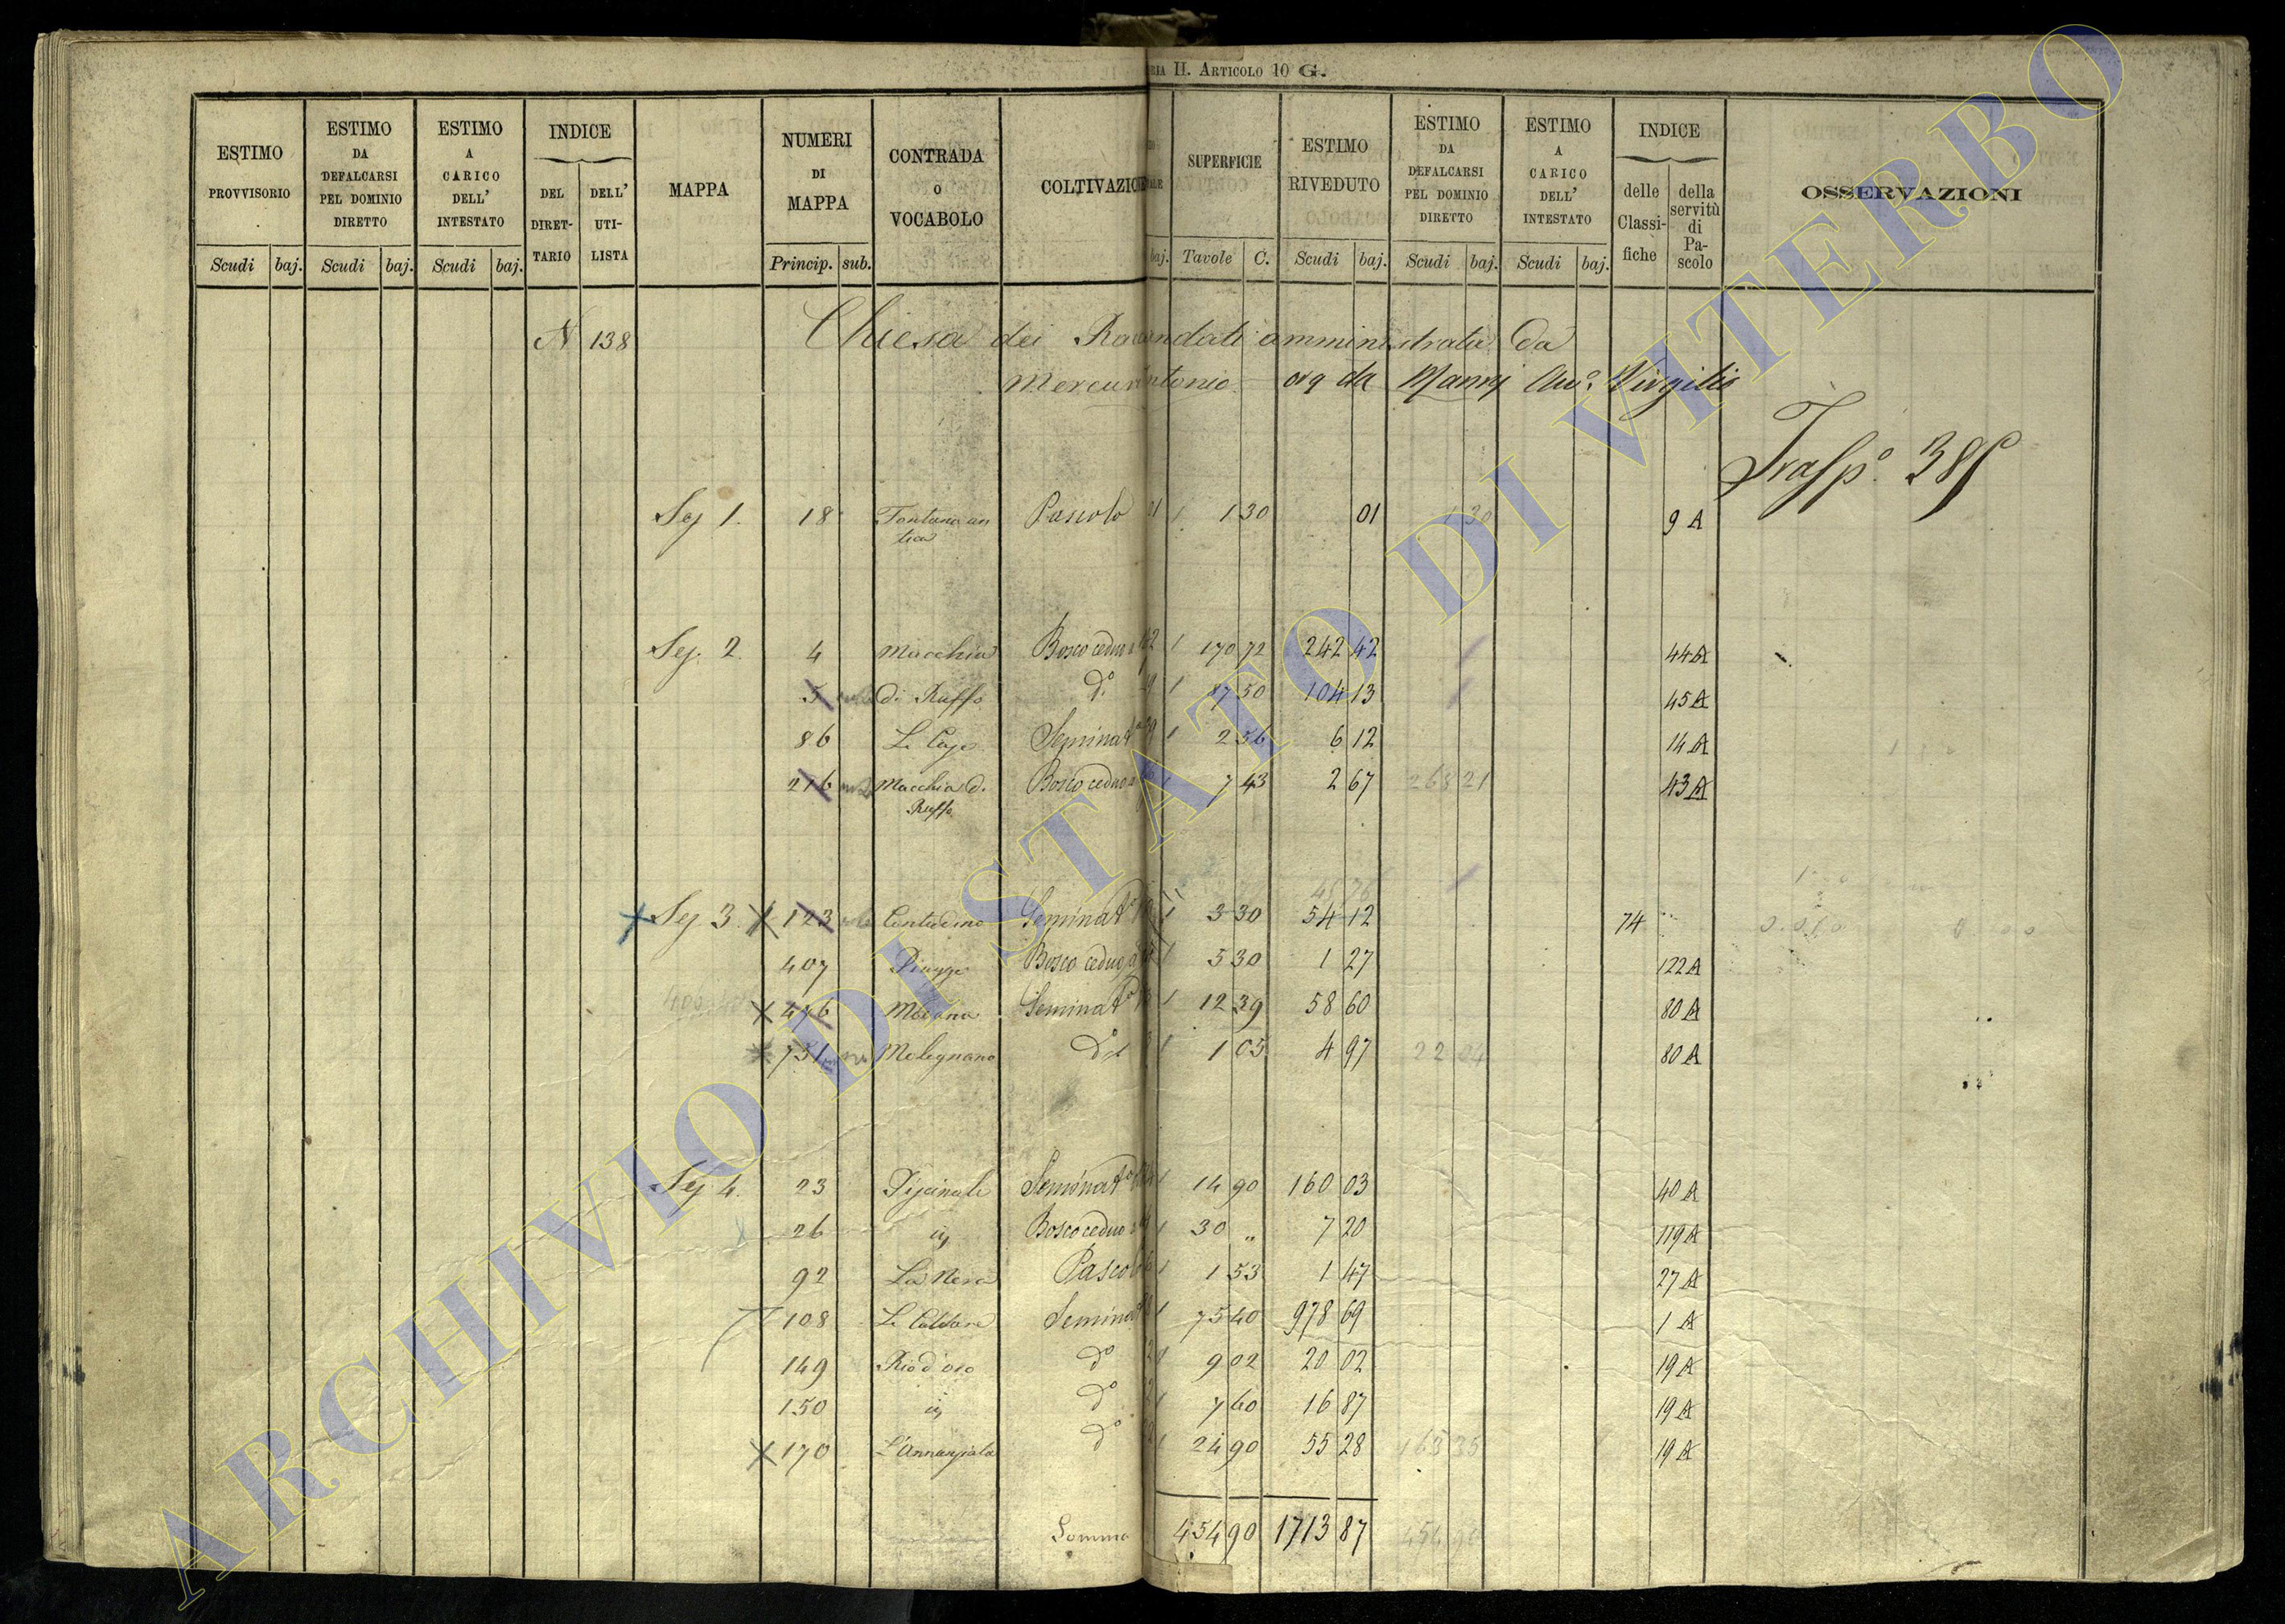 RIA II. ARTICOLO 10 G.
ESTIMO PROVVISORIO
ESTIMO DA DEFALCARSI PEL DOMINIO DIRETTO
ESTIMO A CARICO DELL' INTESTATO
INDICE
DEL DIRETTARIO
DELL' UTILISTA
MAPPA
NUMERI DI MAPPA
CONTRADA O VOCABOLO
COLTIVAZIONE
SUPERFICIE
ESTIMO RIVEDUTO
ESTIMO DA DEFALCARSI PEL DOMINIO DIRETTO
ESTIMO A CARICO DELL' INTESTATO
INDICE
delle Classifiche
della servitù di Pascolo
OSSERVAZIONI
Scudi baj. Scudi baj. Scudi baj. Princip. sub. baj. Tavole C. Scudi baj. Scudi baj. Scudi baj.
N 138 Chiesa dei amministrata da
Antonio ora da Virgilio
Trasp.o
Sez 1. 18 Fontana an Pascolo 01 1 1 30 01 1 30 9 A
tica
Sez. 2 4 Macchia Bosco ceduo 42 1 170 72 242 42 44 A
5 di Ruffo d.o 1 87 50 104 13 45 A
86 Seminat.o 1 2 56 6 12 14 A
216 Macchia di Bosco ceduo 7 43 2 67 268 21 43 A
Ruffo
Sez. 3 123 Seminat.o 1 3 30 54 12 74
407 Piagge Bosco ceduo 1 5 30 1 27 122 A
476 Seminat.o 1 12 39 58 60 80 A
751 Melegnano d.o 1 1 05 4 97 22 04 80 A
Sez 4. 23 Piscinale Seminat.o 1 14 90 160 03 40 A
26 Bosco ceduo 1 30 „ 7 20 119 A
92 La Nera Pascolo 1 1 53 1 47 27 A
108 Seminat 1 75 40 978 69 1 A
149 Rio d'oro d.o 9 02 20 02 19 A
150 d.o 1 7 60 16 87 19 A
170 L'Annunziata d.o 1 24 90 55 28 163 35 19 A
Somma 454 90 1713 87 454 90
ARCHIVIO DI STATO DI VITERBO